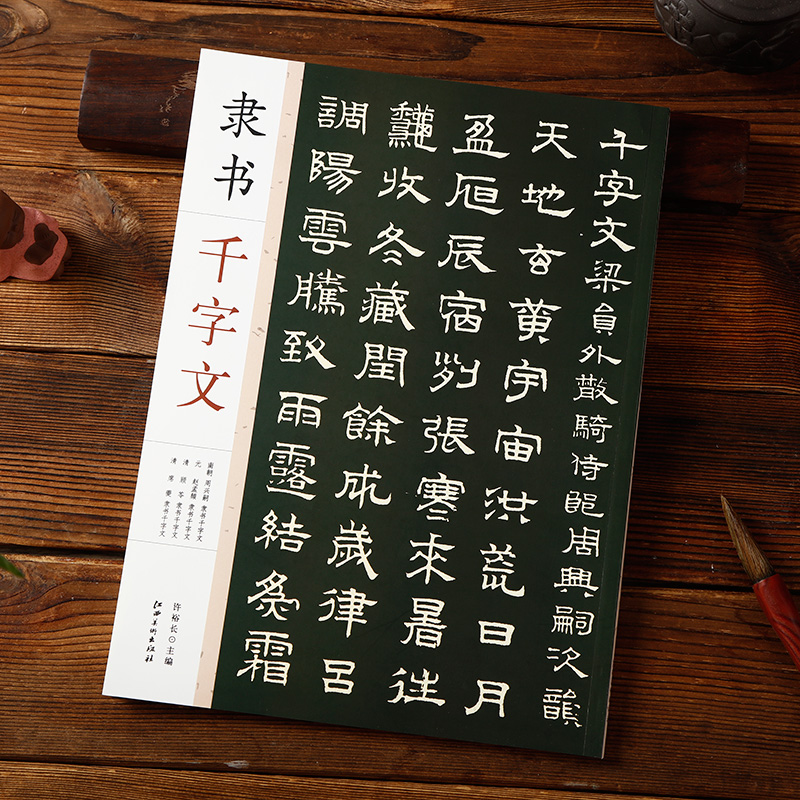 隶书
千字文
南朝 周兴嗣 隶书千字文
元 赵孟頫 隶书千字文
清 顾苓 隶书千字文
清 席夔 隶书千字文
许裕长⊙主编
江西美术出版社
千字文梁員外散騎侍郎周興嗣次韻
天地玄黄宇宙洪荒日月
盈昃辰宿列張寒來暑往
龝收冬藏閏餘成歲律呂
調陽雲騰致雨露結為霜